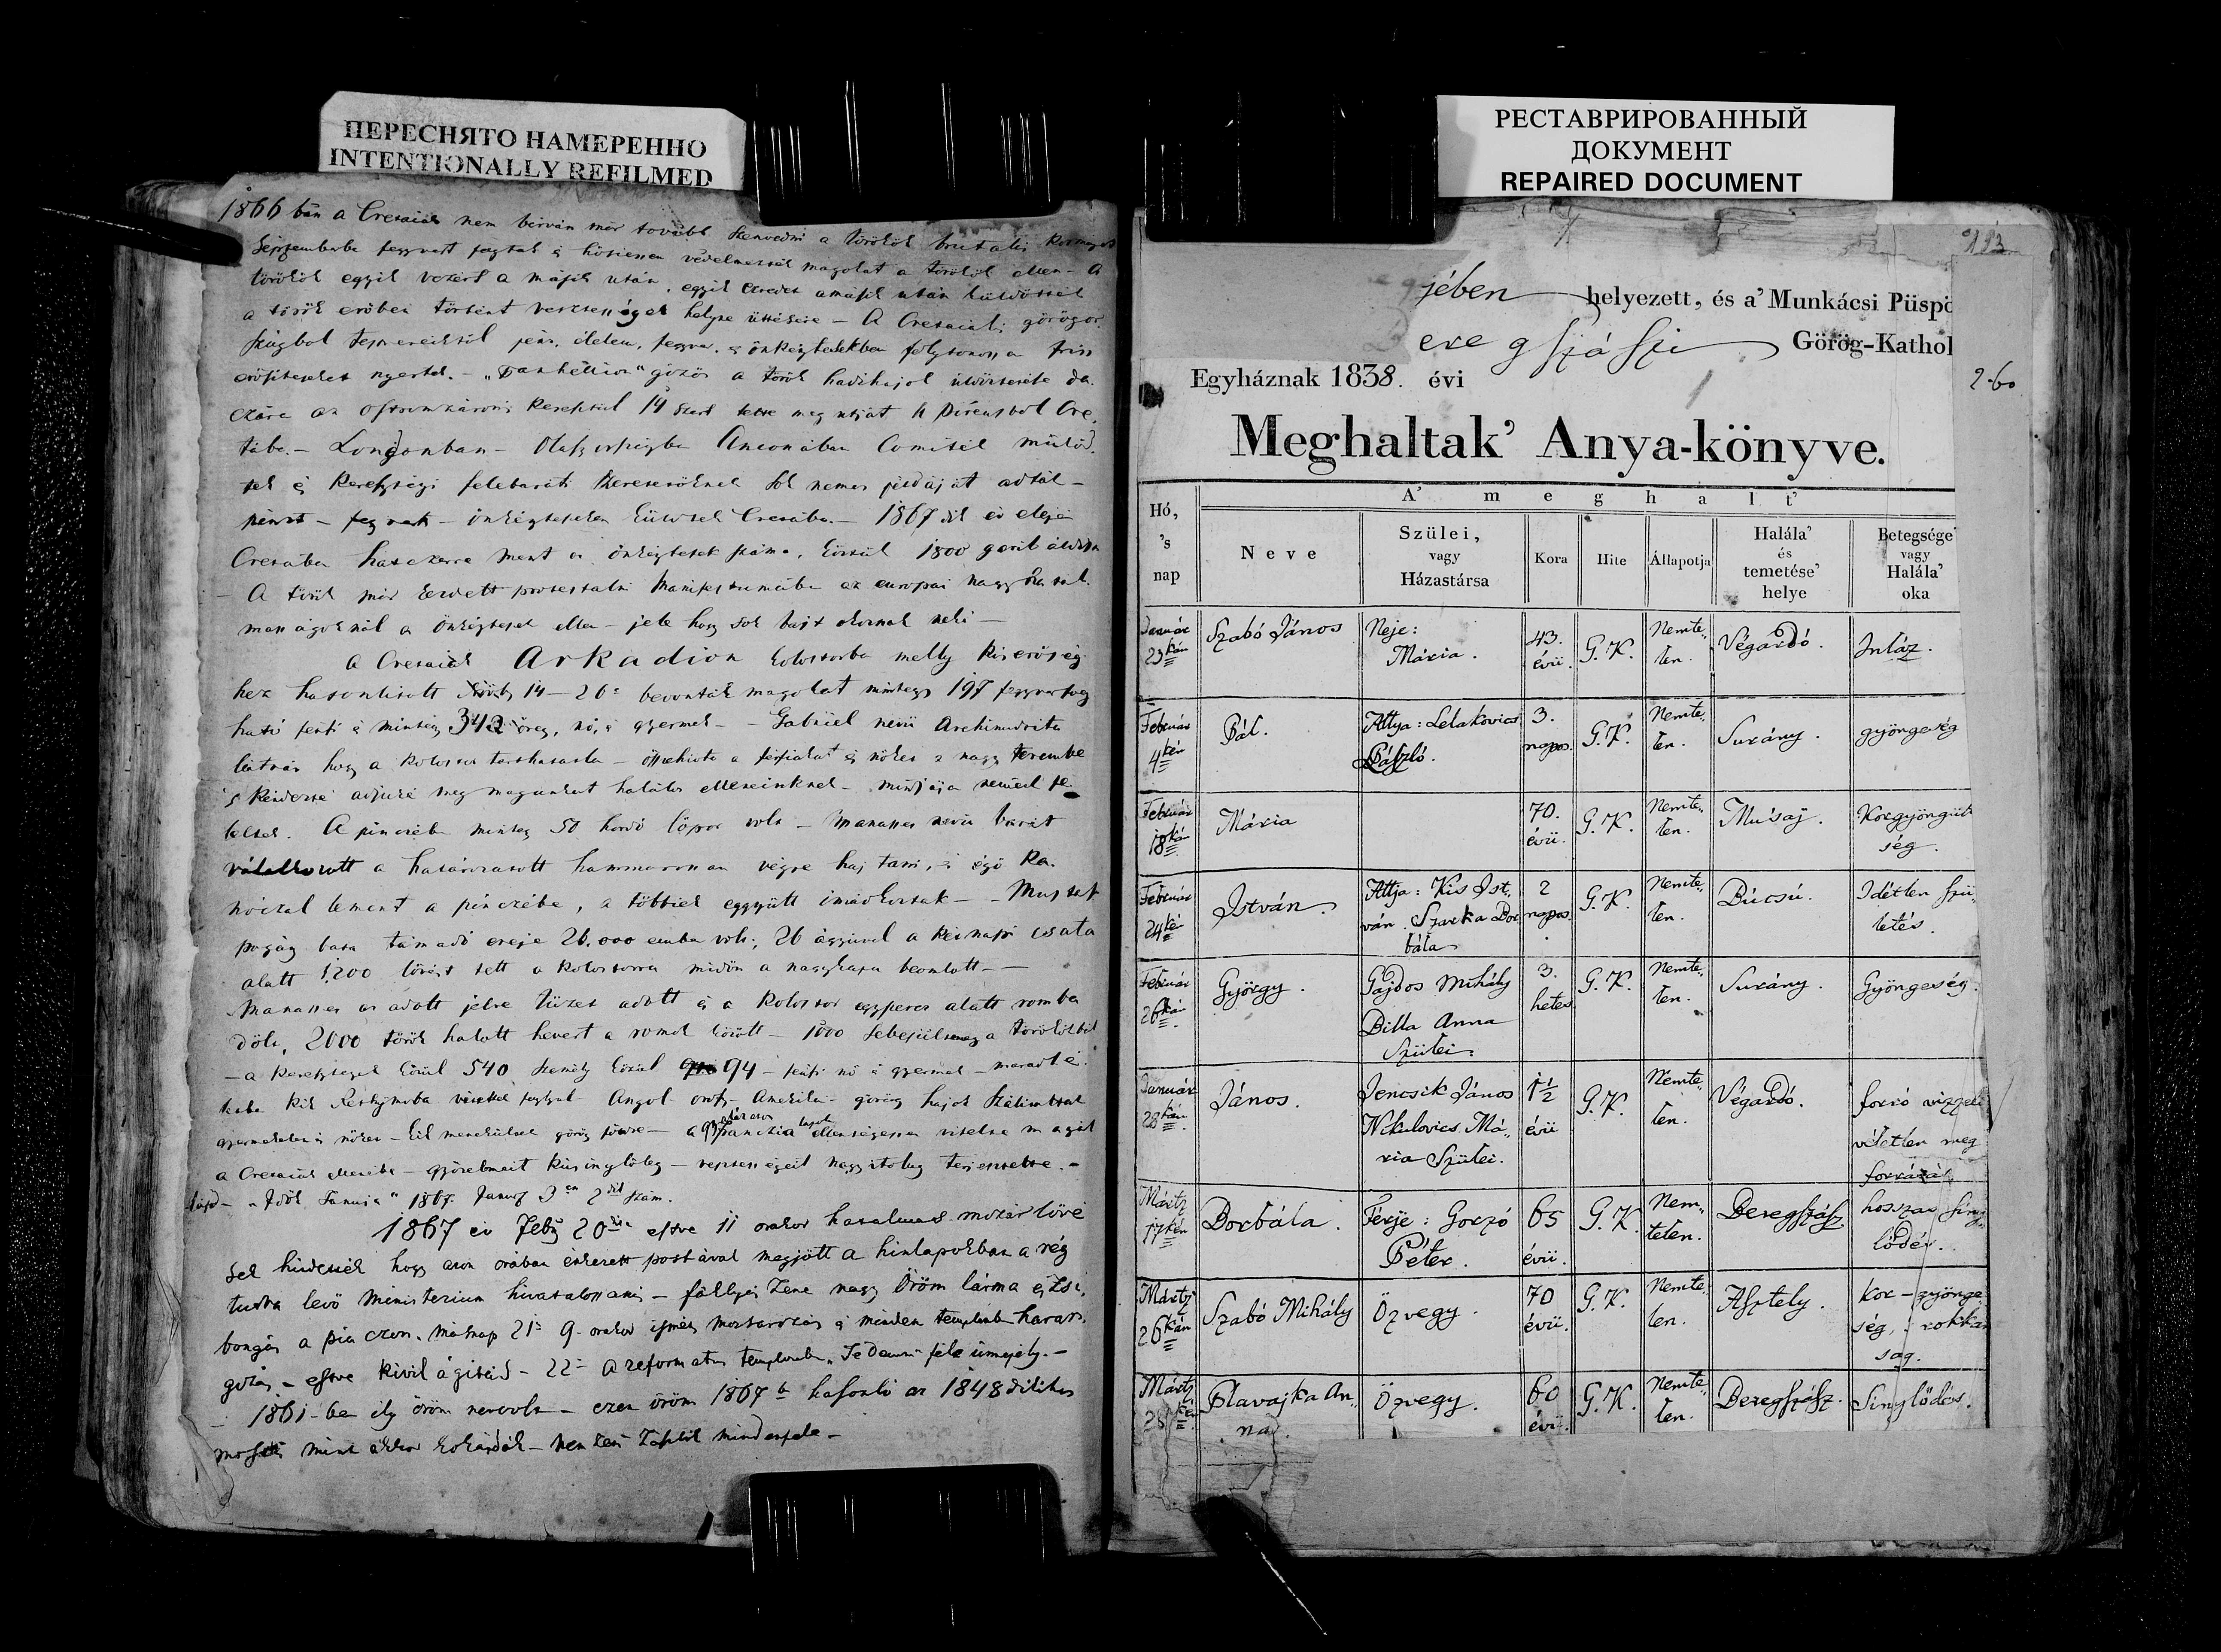 ПЕРЕСНЯТО НАМЕРЕННО
INTENTIONALLY REFILMED
1866 bán a Cretaiak nem bírván már tovább szenvedni a törökök brutalis
Septemberbe fegyvert fogtak és hősiesen védelmezték magokat a törökök ellen - A
törökök egyik vezért a másik után, egyik ezredet a másik után küldötték
a török erőben történt vesztességek helyre ütésére - A Cretaiak görögor
szágbol
erősítéseket nyertek. - "Panhellion" gőzös a török hadihajok
az ostromzárom keresztül 14 szer tette meg utját a Pireusbol Cre
tába. - Londonban - Olaszországba Anconában Comiték működ
tek és keresztyéni felebaráti szeretetöknek sok nemes példáját adták -
pénzt - fegyvert - önkénteseket küldtek Cretába. - 1867 dik év elején
Cretában hatezerre ment az önkéntesek száma, köztük 1800
- A török már kezdett protestalni Manifestumába az europai nagy hatal
masságoknál a önkéntesek ellen - jele hogy sok bajt okoznak neki -
a Cretaiak Arkadion kolostorba melly kis erősség
hez hasonlított 14 - 20 bevonták magokat mintegy 197 fegyverfog
ható férfi és mintegy 343 öreg, nő, és gyermek - - Gabriel nevü Archimandrita
látván hogy a kolostor tarthatatlan - összehívta a férfiakat és nőket a nagy terembe
's kérdezte adjuk é meg magunkat halálos ellenségeinknek - mindnyája nemmel fe
leltek. A pinczébe mintegy 50 hordó lőpor volt - Manasses nevü barát
vállalkozott a határozatott hammarossan végre hajtani, és égő ka
nóczal lement a pinczébe, a többiek eggyütt imádkoztak - - Mustaf
pasa támadó ereje 26.000 ember volt, 26 ágyúval a két napi csata
alatt 1200 lövést tett a kolostorra midőn a nagykapu beomlott -
Manasses az adott jelre tüzet adott és a kolostor egy perc alatt romba
dőlt, 2000 török halott hevert a romok között - 1000 sebesült
- a keresztyének közül 540 személy közül 94 - férfi nő és gyermek - maradt é
Angol - orosz - Amerikai - görög hajok szálittattak
gyermekeket és nőket - kik menekültek görög földre -
a Cretaiak ellenébe - győzelmeit kicsinylőleg - vesztességeit nagyitolag terjesztette. -
lásd - "Idők Tanuja" 1867. Január 3 án 2 dik szám.
1867 év Febr 20 án estve 11 orakor hatalmas mozsár löve
sek hirdették hogy azon orában érkezett postával megjött a hirlapokban a rég
tudva levő Ministerium hivatalossan - fáklyás Zene nagy Öröm lárma éjtszi
bongás a piaczon. Másnap 21 9 orakor ismét mozsarozás és minden templomba haran
gozás - estve kivilágitás - 22 a reformatus templomba "Te Deum" féle ünnepély. -
- 1861-be ily öröm nem volt - ezen öröm 1867 be hasonló az 1848 dikihoz
most is mint akkor kokárdák - nemzeti zászlók mindenfele -
РЕСТАВРИРОВАННЫЙ
ДОКУМЕНТ
REPAIRED DOCUMENT
jében helyezett, és a' Munkácsi Püspö
eregszászi Görög-Kathol
Egyháznak 1838. évi
2-60
Meghaltak' Anya-könyve.
A' meghalt'
Hó, 's nap
Neve
Szülei, vagy Házastársa
Kora
Hite
Állapotja
Halála' és temetése' helye
Betegsége' vagy Halála' oka
Január 23kán Szabó János Neje: Mária. 43. évü. G.K. Nemte„ len. Végardó. Inláz.
Február 4kén Pál. Attya: Lelakovics László. 3. napos. G.K. Nemte„ len. Surány. gyöngeség
Február 18kán Mária 70. évü. G.K. Nemte„ len. Muśaj. Korgyöngül ség.
Február 24kén István. Attja: Kis Ist„ ván. Szarka Bor bála 2 napos. G.K. Nemte„ len. Búcsú. Idétlen szü„ letés.
Február 26kán György. Gajdos Mihály Dilla Anna Szülei. 3. hetes G.K. Nemte„ len. Surány. Gyöngeség.
Január 28kán János. Jencsik János Nikulovics Má„ ria Szülei. 1½ évü G.K. Nemte„ len. Végardó. forró vizzeli véletlen meg forrázás
Mártz 17kén Borbála. Férje: Gorzó Péter. 65 évü. G.K. Nem„ telen. Beregszász. hosszas siny lődés.
Mártz 26kán Szabó Mihály Özvegy. 70 évü. G.K. Nemte len. Asztely. Kor-gyönge ség, 's rokkan ság.
Mártz 28kán Plavajka An„ na. Özvegy. 60 évü. G.K. Nemte„ len. Beregszász. Sinylődés.